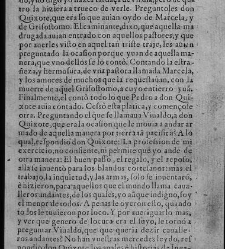 tro la hiziera a trueco de verle. Preguntoles don
Quixote, que era lo que auian oydo de Marcela, y
de Grisostomo. El caminante, dixo, que aquella ma
drugada auian entado con aquellos pastores, y que
por auerles visto en aquel tan triste traje, les auian
preguntado la ocasion porque yuan de aquella ma
nera, que vno dellos se lo contò. Contando la estra-
ñeza, y hermosura, de vna pastora llamada Marcela,
y los amores de muchos que la requestauan, con la
muerte de aquel Grisostomo, a cuyo entierro yuan.
Finalmente, el contò todo lo que Pedro a don Qui-
xote auia contado. Cessò esta platica, y començo-
se otra. Preguntando el que se llamaua Viualdo, a don
Quixote, que era la ocasion que le mouia a andar ar
mado de aquella manera por tierra tan pacifica. A lo
qual respondio don Quixote: La profession de mi
exercicio, no consiente, ni permite que yo ande de
otra manera: El buen passo, el regalo, y el reposo,
alla se inuentò para los blandos cortesanos: mas el
trabajo, la inquietud, y las armas, solo se inuentaron,
è hizieron, para aquellos que el mundo llama caua-
lleros andantes, de los quales, yo aunque indigno, soy
el menor de todos. A penas le oyeron esto, quando
todos le tuuieron por loco. Y por aueriguarlo mas,
y ver que genero de locura era el suyo, le tornò a
preguntar Viualdo, que que queria dezir caualle-
ros andantes? No han vuestras mercedes leydo, res